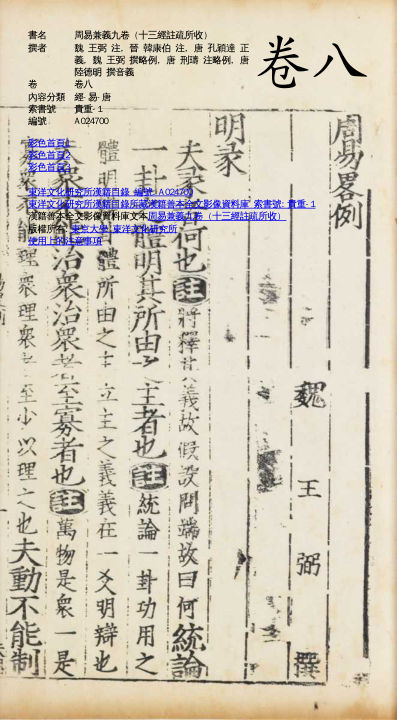 書名 周易兼義九卷（十三經註疏所收）
撰者 魏 王弼 注, 晉 韓康伯 注, 唐 孔穎達 正
義, 魏 王弼 撰略例, 唐 刑璹 注略例, 唐
陸德明 撰音義
卷 卷八
內容分類 經-易-唐
索書號 貴重-1
編號 A024700
卷八
彩色首頁1
彩色首頁2
東洋文化研究所漢籍目錄 編號: A024700
東洋文化研究所漢籍目錄所藏漢籍善本全文影像資料庫 索書號: 貴重-1
漢籍善本全文影像資料庫文本周易兼義九卷（十三經註疏所收）
版權所有: 東京大學 東洋文化研究所
使用上的注意事項
周易畧例
魏 王 弼 撰
明彖
夫彖者何也註將釋其義故假設問端故曰何統論
一卦之體明其所由之主者也註統論一卦功用之
體明 體所由之主立主之義義在一爻明辯也
治衆治衆者至寡者也註萬物是衆一是
衆 能理衆理衆 至少以理之也夫動不能制